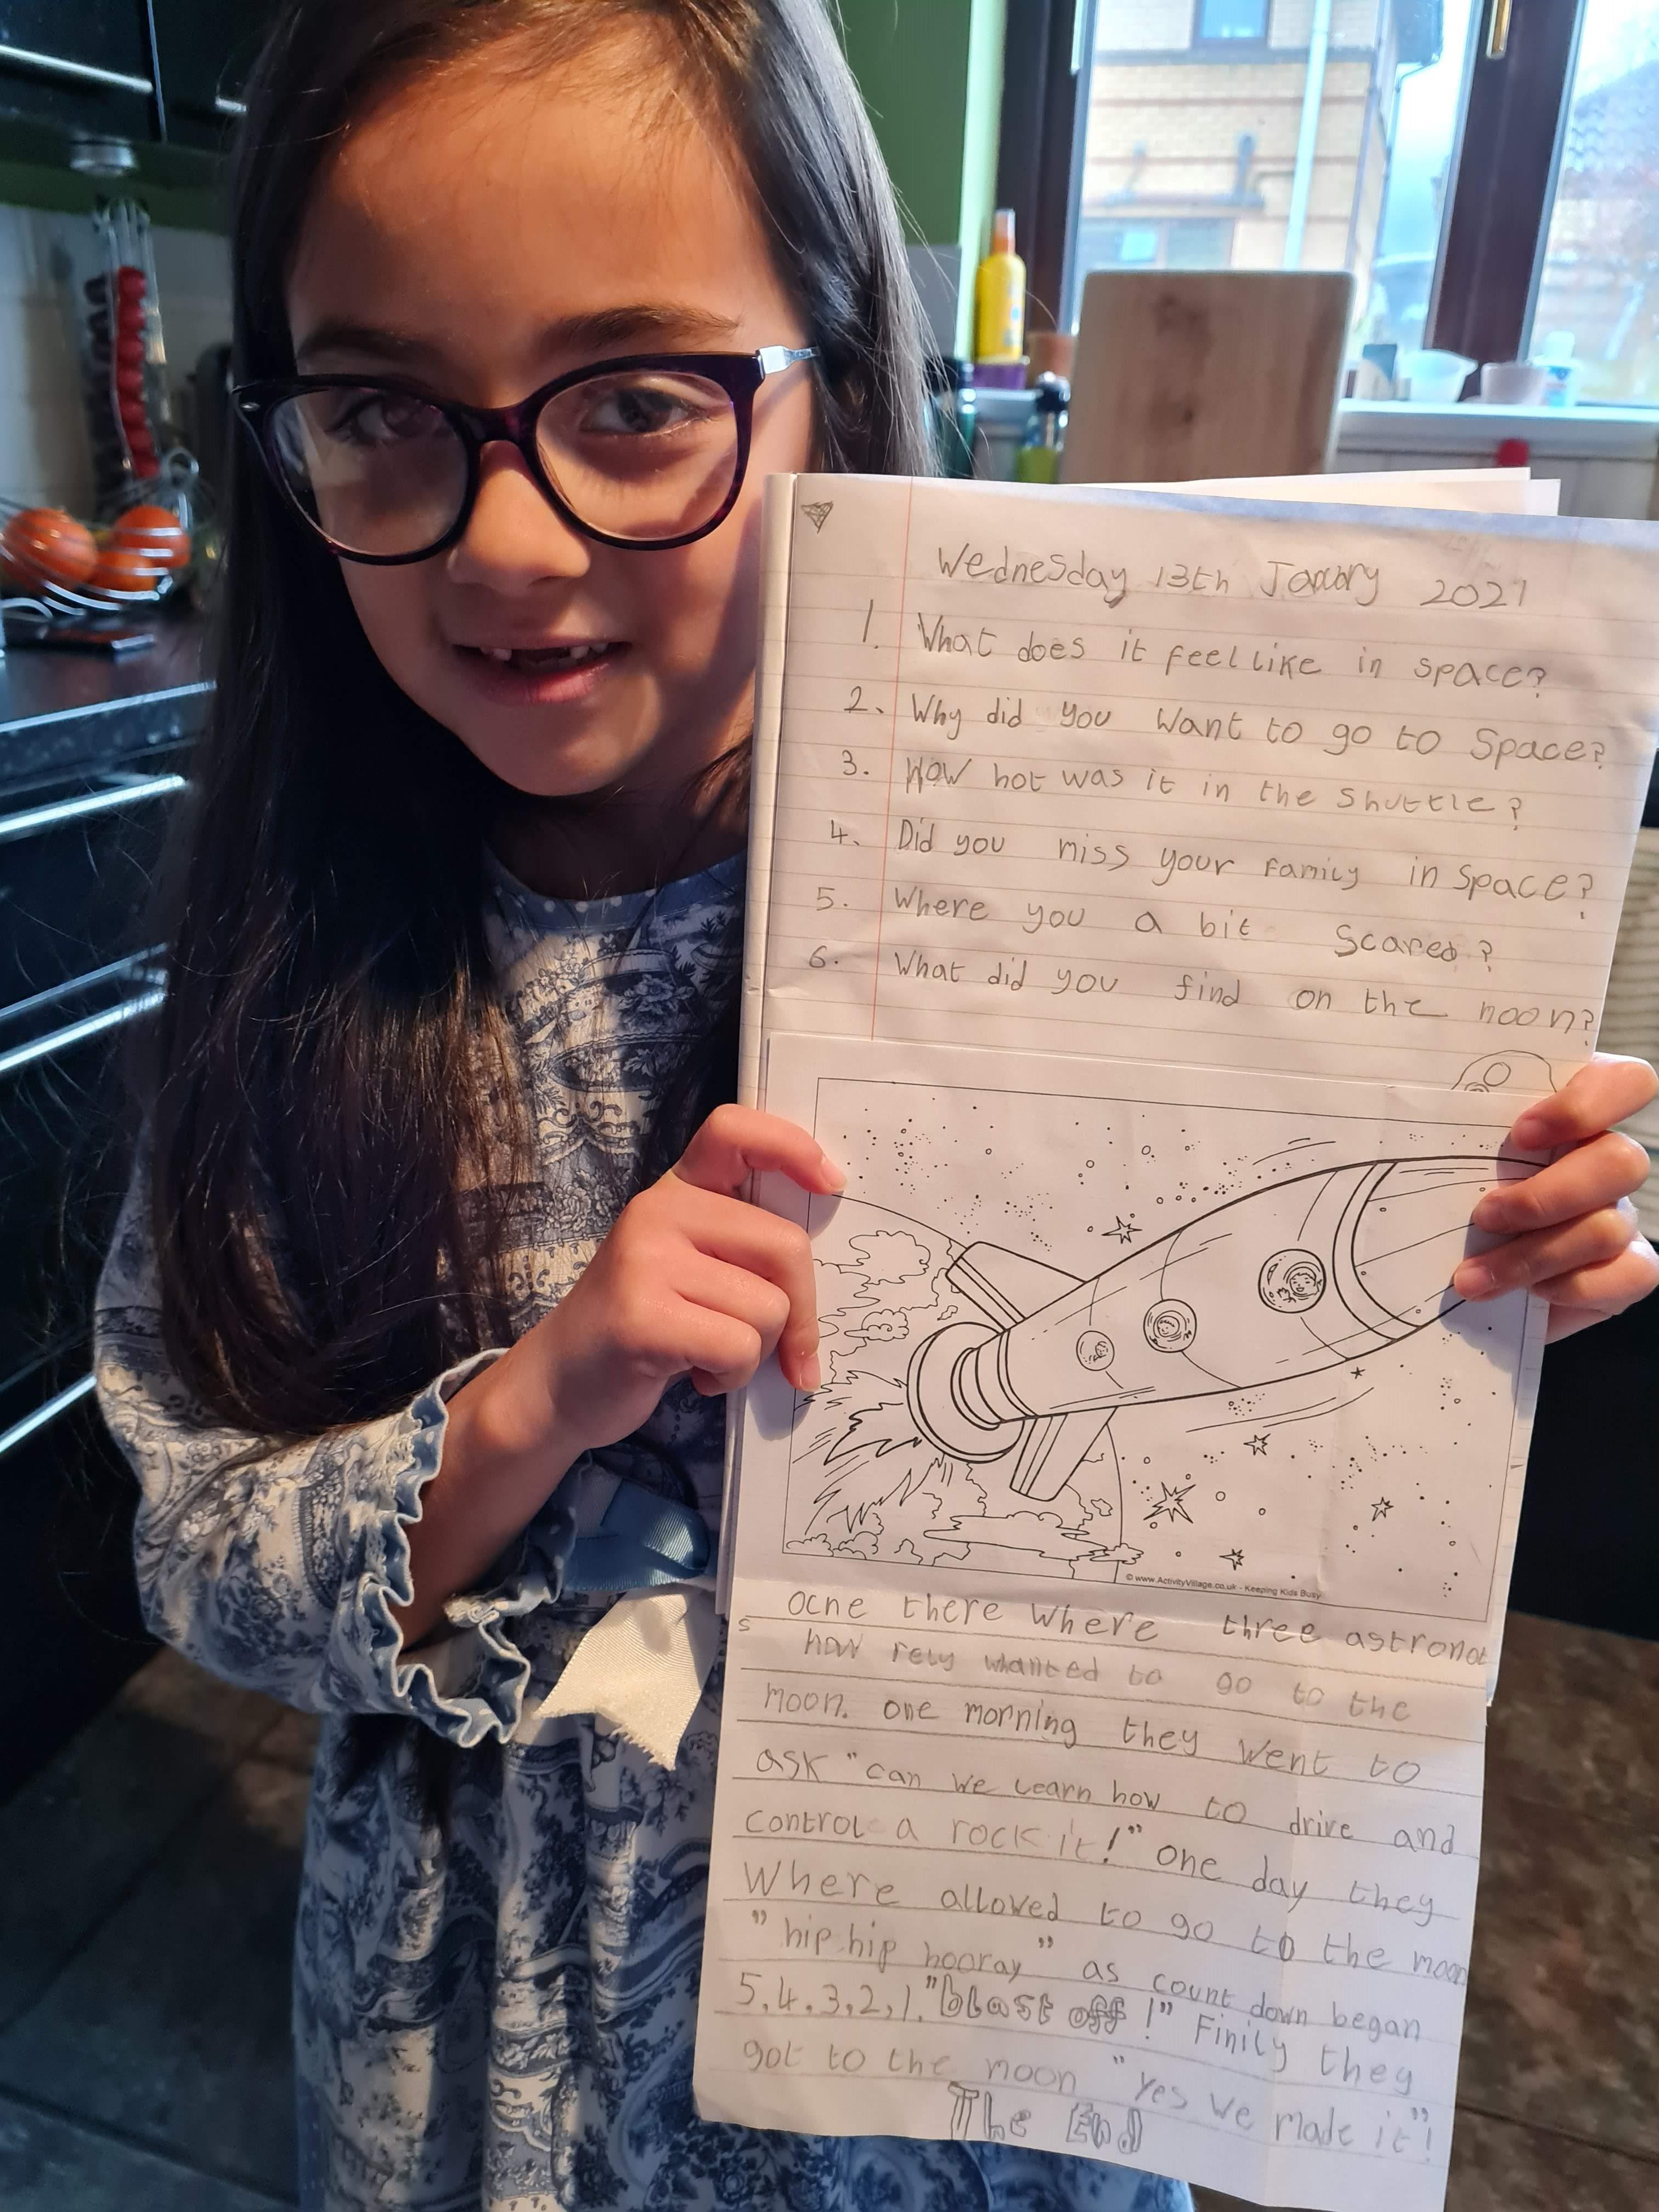 Wednesday 13th January 2021
1. What does it feel like in space?
2. Why did you want to go to Space?
3. How hot was it in the Shuttle?
4. Did you miss your family in Space?
5. Where you a bit Scared?
6. What did you find on the moon?
© www.ActivityVillage.co.uk - Keeping Kids Busy
ocne there where three astronot
s how rely whanted to go to the
moon. one morning they went to
ask "can we learn how to drive and
control a rock it!" one day they
where allowed to go to the moon
"hip hip hooray" as count down began
5,4,3,2,1."blast off!" Finily they
got to the moon "yes we made it"!
The End